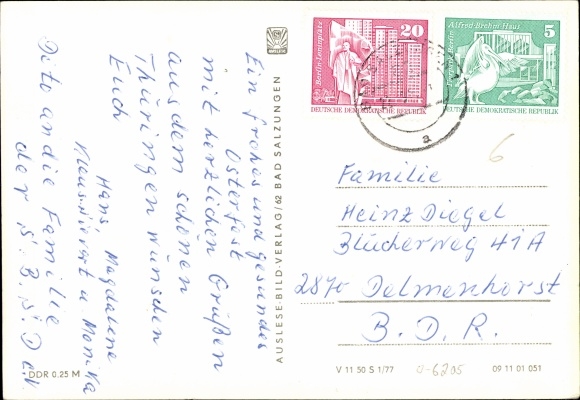 Ein frohes und gesundes
Osterfest
mit herzlichen Grüßen
aus dem schönen
Thüringen wünschen
Euch
Hans, Magdalene
u. Monika
Dito an die Familie
der
AUSLESE-BILD-VERLAG/62 BAD SALZUNGEN
DDR 0.25 M
Berlin-Leninplatz
20
DEUTSCHE DEMOKRATISCHE REPUBLIK
Alfred-Brehm-Haus
Tierpark Berlin
5
DEUTSCHE DEMOKRATISCHE REPUBLIK
a
6
Familie
Heinz Diegel
Blücherweg 41A
2870 Delmenhorst
B.D.R.
V 11 50 S 1/77
0-6205
09 11 01 051